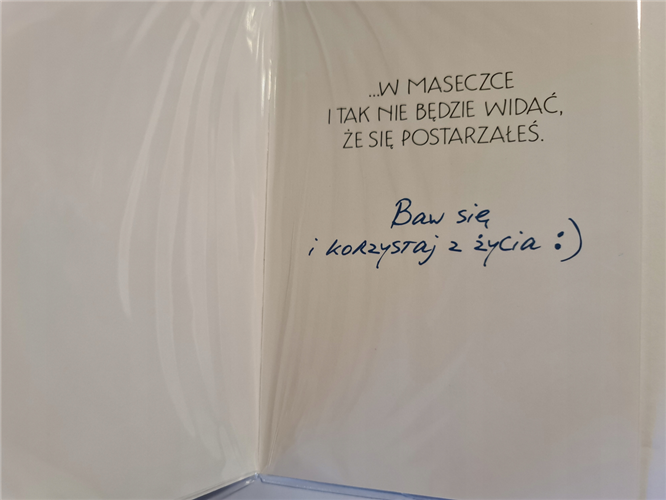 ...W MASECZCE
I TAK NIE BĘDZIE WIDAĆ,
ŻE SIĘ POSTARZAŁEŚ.
Baw się
i korzystaj z życia :)